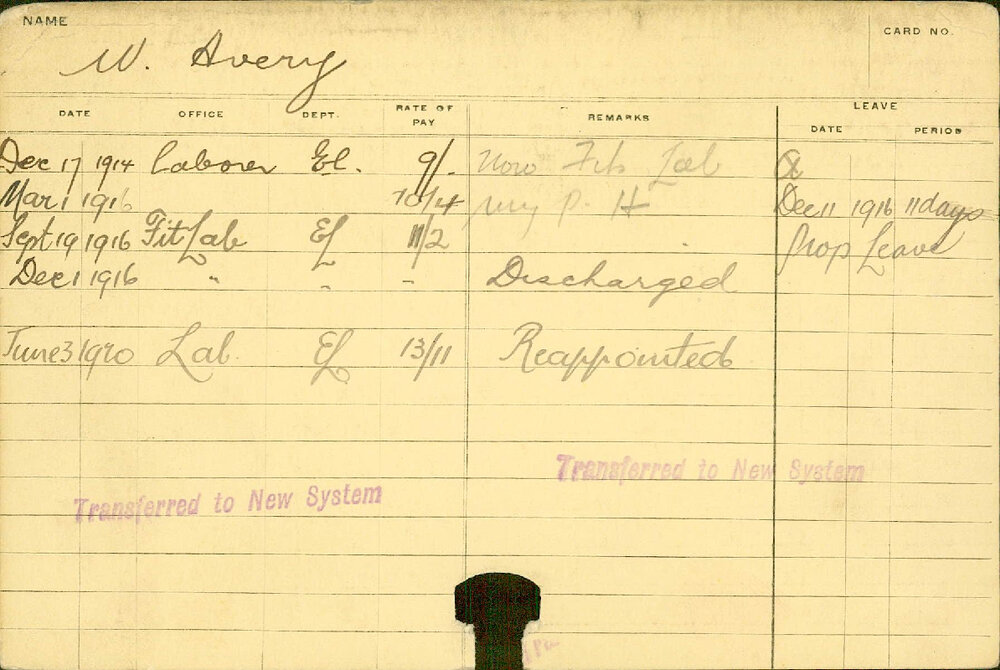 NAME
CARD NO.
W. Avery
DATE OFFICE DEPT. RATE OF PAY REMARKS LEAVE
DATE PERIOD
Dec 17 1914 Laborer El. 9/- Now Fit Lab
Mar 1 1916 10/4 P. H Dec 11 1916 11 days
Sept 19 1916 Fit Lab El 11/2 Prop Leave
Dec 1 1916 " " - Discharged
June 3 1920 Lab. El 13/11 Reappointed
Transferred to New System
Transferred to New System